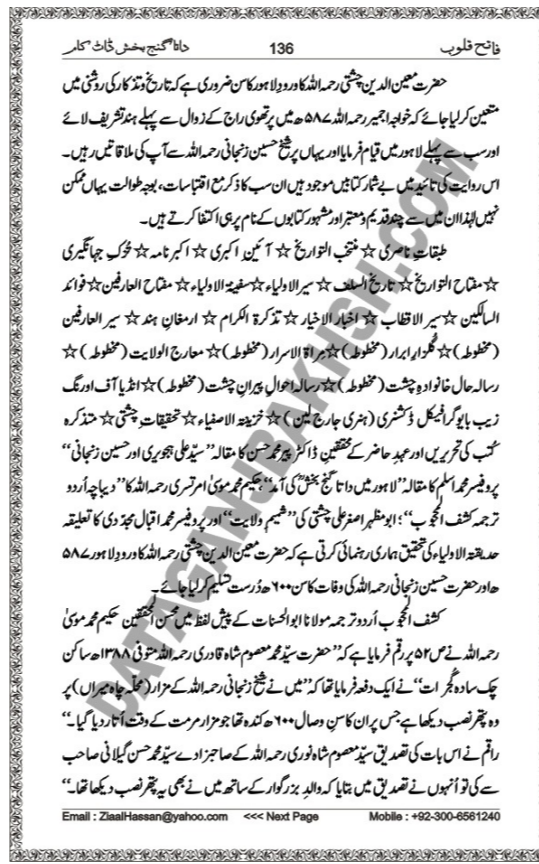 فاتح قلوب 136 داتا گنج بخش ڈاٹ کام
حضرت معین الدین چشتی رحمہ اللہ کا ورودِ لاہور کا سن ضروری ہے کہ تاریخ و تذکار کی روشنی میں
متعین کر لیا جائے کہ خواجہ اجمیر رحمہ اللہ ۵۸۷ھ میں پرتھوی راج کے زوال سے پہلے ہند تشریف لائے
اور سب سے پہلے لاہور میں قیام فرمایا اور یہاں پر شیخ حسین زنجانی رحمہ اللہ سے آپ کی ملاقاتیں رہیں۔
اس روایت کی تائید میں بے شمار کتابیں موجود ہیں ان سب کا ذکر مع اقتباسات، بوجہ طوالت یہاں ممکن
نہیں لہٰذا ان میں سے چند قدیم و معتبر اور مشہور کتابوں کے نام پر ہی اکتفا کرتے ہیں۔
طبقاتِ ناصری ☆ منتخب التواریخ ☆ آئینِ اکبری ☆ اکبر نامہ ☆ تُحوکِ جہانگیری
☆ مفتاح التواریخ ☆ تاریخ السلف ☆ سیر الاولیاء ☆ سفینۃ الاولیاء ☆ مفتاح العارفین ☆ فوائد
السالکین ☆ سیر الاقطاب ☆ اخبار الاخیار ☆ تذکرۃ الکرام ☆ ارمغانِ ہند ☆ سیر العارفین
(مخطوطہ) ☆ گلدارِ ابرار (مخطوطہ) ☆ مراۃ الاسرار (مخطوطہ) ☆ معارج الولایت (مخطوطہ) ☆
رسالہ حال خانوادہِ چشت (مخطوطہ) ☆ رسالہ احوال پیرانِ چشت (مخطوطہ) ☆ انڈیا آف اورنگ
زیب بایوگرافیکل ڈکشنری (ہنری جارج کین) ☆ خزینۃ الاصفیاء ☆ تحقیقاتِ چشتی ☆ متذکرہ
کتب کی تحریریں اور عہدِ حاضر کے محققین ڈاکٹر پیر محمد حسن کا مقالہ ”سیّد علی ہجویری اور حسین زنجانی“
پروفیسر محمد اسلم کا مقالہ ”لاہور میں داتا گنج بخشؒ کی آمد“، حکیم محمد موسیٰ امرتسری رحمہ اللہ کا ”دیباچہ اُردو
ترجمہ کشف المحجوب“؛ ابو مظہر اصغر علی چشتی کی ”شمیمِ ولایت“ اور پروفیسر محمد اقبال مجدّدی کا تعلیقہ
حدیقۃ الاولیاء کی تحقیق ہماری رہنمائی کرتی ہے کہ حضرت معین الدین چشتی رحمہ اللہ کا ورودِ لاہور ۵۸۷
ھ اور حضرت حسین زنجانی رحمہ اللہ کی وفات کا سن ۶۰۰ھ درست تسلیم کر لیا جائے۔
کشف المحجوب اُردو ترجمہ مولانا ابوالحسنات کے پیش لفظ میں محسن المحققین حکیم محمد موسیٰ
رحمہ اللہ نے ص ۵۲ پر رقم فرمایا ہے کہ ”حضرت سیّد محمد معصوم شاہ قادری رحمہ اللہ متوفی ۱۳۸۸ھ ساکن
چک سادہ گجرات“ نے ایک دفعہ فرمایا تھا کہ ”میں نے شیخ زنجانی رحمہ اللہ کے مزار (محلّہ چاہ میراں) پر
وہ پتھر نصب دیکھا ہے جس پر ان کا سنِ وصال ۶۰۰ھ کندہ تھا جو مزار مرمت کے وقت اُتار دیا گیا۔“
راقم نے اس بات کی تصدیق سیّد معصوم شاہ نوری رحمہ اللہ کے صاحبزادے سیّد محمد حسن گیلانی صاحب
سے کی تو اُنہوں نے تصدیق میں بتایا کہ والدِ بزرگوار کے ساتھ میں نے بھی یہ پتھر نصب دیکھا تھا۔“
Email : ZiaalHassan@yahoo.com <<< Next Page Mobile : +92-300-6561240
DATAGANJBAKHSH.COM